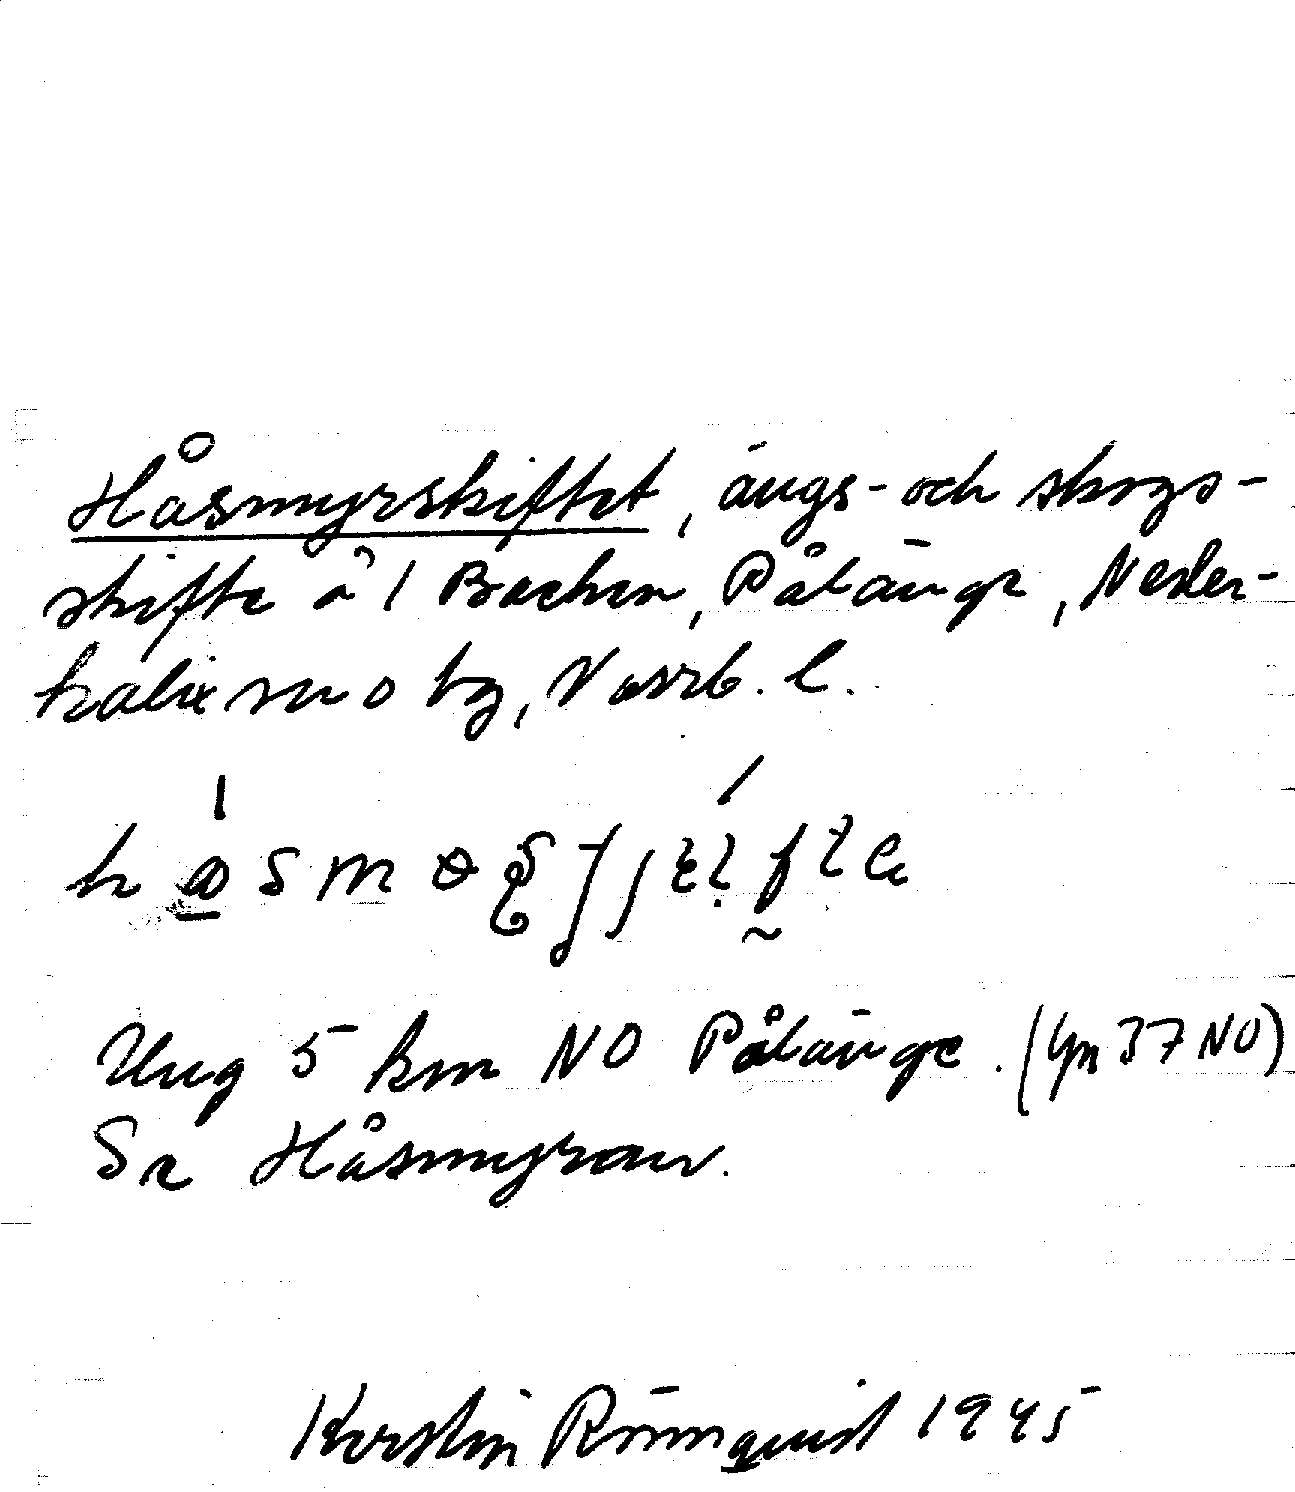 Håsmyrskiftet, ängs- och skogs-
skifte å 1 Backen, Pålänge, Neder-
kalix sn o tg, Norrb. l.
Ung 5 km NO Pålänge. (Gpn 37 NO)
Se Håsmyran.
Kerstin Rönnquist 1945